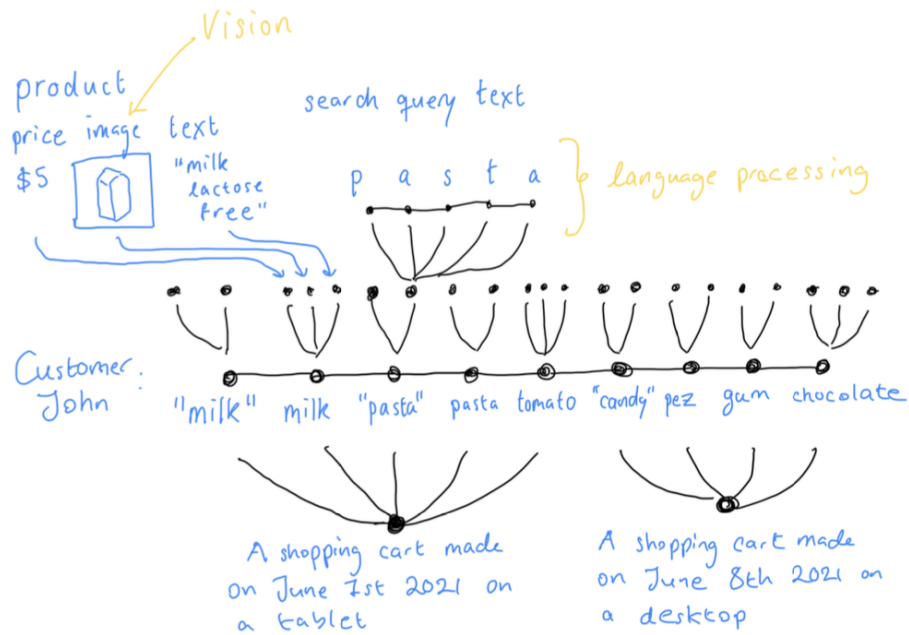 Vision
product
price image text
$5
"milk
lactose
free"
search query text
p a s t a
language processing
Customer:
John
"milk" milk "pasta" pasta tomato "candy" pez gum chocolate
A shopping cart made
on June 1st 2021 on
a tablet
A shopping cart made
on June 8th 2021 on
a desktop